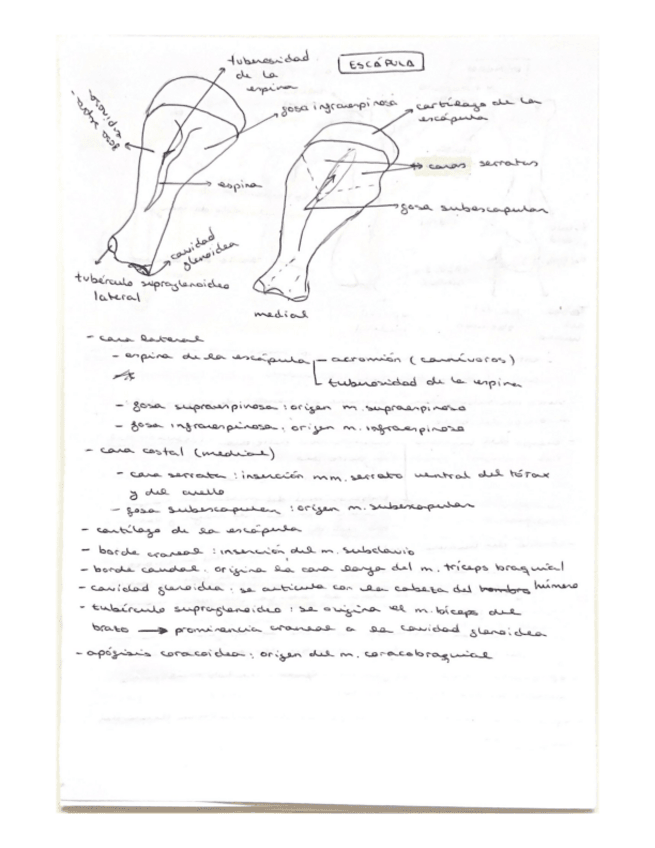 ESCÁPULA
tuberosidad
de la
espina
fosa infraespinosa
cartílago de la
escápula
fosa supra-
caras serratas
espina
fosa subescapular
cavidad
glenoidea
tubérculo supraglenoideo
lateral
medial
- cara lateral
- espina de la escápula - acromión (carnívoros)
- tuberosidad de la espina
- fosa supraespinosa: origen m. supraespinoso
- fosa infraespinosa: origen m. infraespinoso
- cara costal (medial)
- cara serrata: inserción mm. serrato ventral del tórax
y del cuello
- fosa subescapular: origen m. subescapular
- cartílago de la escápula
- borde craneal: inserción del m. subclavio
- borde caudal: origina la cara larga del m. tríceps braquial
- cavidad glenoidea: se articula con la cabeza del hombro húmero
- tubérculo supraglenoideo: se origina el m. bíceps del
brazo → prominencia craneal a la cavidad glenoidea
- apófisis coracoidea: origen del m. coracobraquial